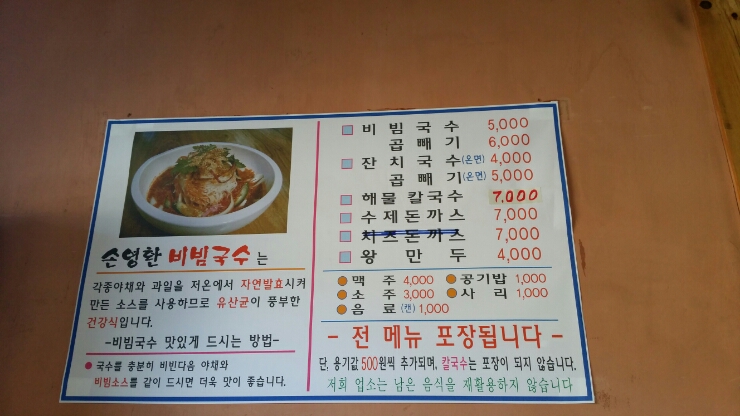 손영환 비빔국수 는
각종야채와 과일을 저온에서 자연발효시켜
만든 소스를 사용하므로 유산균이 풍부한
건강식입니다.
-비빔국수 맛있게 드시는 방법-
● 국수를 충분히 비빈다음 야채와
비빔소스를 같이 드시면 더욱 맛이 좋습니다.
비빔국수 5,000
곱빼기 6,000
잔치국수(온면) 4,000
곱빼기(온면) 5,000
해물 칼국수 7,000
수제돈까스 7,000
치즈돈까스 7,000
왕만두 4,000
맥주 4,000 공기밥 1,000
소주 3,000 사리 1,000
음료(캔) 1,000
- 전 메뉴 포장됩니다 -
단, 용기값 500원씩 추가되며, 칼국수는 포장이 되지 않습니다.
저희 업소는 남은 음식을 재활용하지 않습니다